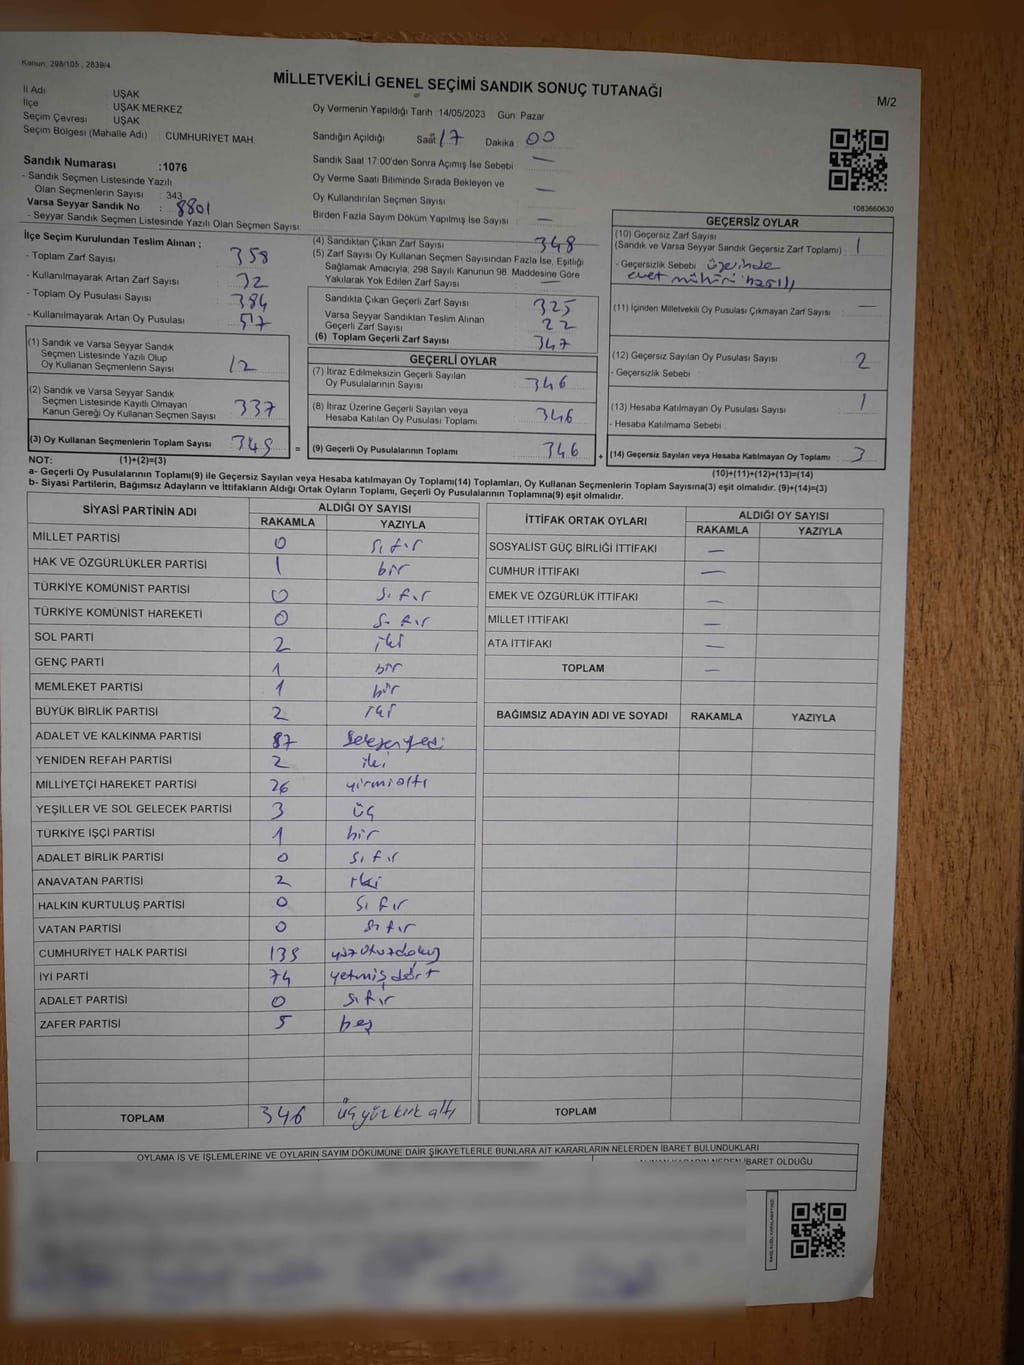 Kanun, 298/105 , 2839/4
MİLLETVEKİLİ GENEL SEÇİMİ SANDIK SONUÇ TUTANAĞI
M/2
İl Adı : UŞAK
İlçe : UŞAK MERKEZ
Seçim Çevresi : UŞAK
Seçim Bölgesi (Mahalle Adı) : CUMHURİYET MAH.
Sandık Numarası : 1076
- Sandık Seçmen Listesinde Yazılı
Olan Seçmenlerin Sayısı : 343
Varsa Seyyar Sandık No : 8801
- Seyyar Sandık Seçmen Listesinde Yazılı Olan Seçmen Sayısı
Oy Vermenin Yapıldığı Tarih :14/05/2023 Gün: Pazar
Sandığın Açıldığı Saat 17 Dakika : 00
Sandık Saat 17:00'den Sonra Açımış İse Sebebi : —
Oy Verme Saati Bitiminde Sırada Bekleyen ve
Oy Kullandırılan Seçmen Sayısı : —
Birden Fazla Sayım Döküm Yapılmış İse Sayısı : —
1083660630
İlçe Seçim Kurulundan Teslim Alınan ;
- Toplam Zarf Sayısı : 358
- Kullanılmayarak Artan Zarf Sayısı : 32
- Toplam Oy Pusulası Sayısı : 384
- Kullanılmayarak Artan Oy Pusulası :
(1) Sandık ve Varsa Seyyar Sandık
Seçmen Listesinde Yazılı Olup
Oy Kullanan Seçmenlerin Sayısı : 12
(2) Sandık ve Varsa Seyyar Sandık
Seçmen Listesinde Kayıtlı Olmayan
Kanun Gereği Oy Kullanan Seçmen Sayısı : 337
(3) Oy Kullanan Seçmenlerin Toplam Sayısı : 349
(4) Sandıktan Çıkan Zarf Sayısı : 348
(5) Zarf Sayısı Oy Kullanan Seçmen Sayısından Fazla İse, Eşitliği
Sağlamak Amacıyla; 298 Sayılı Kanunun 98. Maddesine Göre
Yakılarak Yok Edilen Zarf Sayısı : —
Sandıkta Çıkan Geçerli Zarf Sayısı : 325
Varsa Seyyar Sandıktan Teslim Alınan
Geçerli Zarf Sayısı : 22
(6) Toplam Geçerli Zarf Sayısı : 347
GEÇERLİ OYLAR
(7) İtiraz Edilmeksizin Geçerli Sayılan
Oy Pusulalarının Sayısı : 346
(8) İtiraz Üzerine Geçerli Sayılan veya
Hesaba Katılan Oy Pusulaları Toplamı : 346
= (9) Geçerli Oy Pusulalarının Toplamı : 346 +
GEÇERSİZ OYLAR
(10) Geçersiz Zarf Sayısı
(Sandık ve Varsa Seyyar Sandık Geçersiz Zarf Toplamı) : 1
- Geçersizlik Sebebi : üzerinde
evet mühürü basılı
(11) İçinden Milletvekili Oy Pusulası Çıkmayan Zarf Sayısı : —
(12) Geçersiz Sayılan Oy Pusulası Sayısı : 2
- Geçersizlik Sebebi :
(13) Hesaba Katılmayan Oy Pusulası Sayısı : 1
- Hesaba Katılmama Sebebi :
(14) Geçersiz Sayılan veya Hesaba Katılmayan Oy Toplamı : 3
NOT: (1)+(2)=(3)
(10)+(11)+(12)+(13)=(14)
a- Geçerli Oy Pusulalarının Toplamı(9) ile Geçersiz Sayılan veya Hesaba katılmayan Oy Toplamı(14) Toplamları, Oy Kullanan Seçmenlerin Toplam Sayısına(3) eşit olmalıdır. (9)+(14)=(3)
b- Siyasi Partilerin, Bağımsız Adayların ve İttifakların Aldığı Ortak Oyların Toplamı, Geçerli Oy Pusulalarının Toplamına(9) eşit olmalıdır.
SİYASİ PARTİNİN ADI ALDIĞI OY SAYISI
RAKAMLA YAZIYLA
MİLLET PARTİSİ 0 sıfır
HAK VE ÖZGÜRLÜKLER PARTİSİ 1 bir
TÜRKİYE KOMÜNİST PARTİSİ 0 sıfır
TÜRKİYE KOMÜNİST HAREKETİ 0 sıfır
SOL PARTİ 2 iki
GENÇ PARTİ 1 bir
MEMLEKET PARTİSİ 1 bir
BÜYÜK BİRLİK PARTİSİ 2 iki
ADALET VE KALKINMA PARTİSİ 87 Seksenyedi
YENİDEN REFAH PARTİSİ 2 iki
MİLLİYETÇİ HAREKET PARTİSİ 26 yirmialtı
YEŞİLLER VE SOL GELECEK PARTİSİ 3 üç
TÜRKİYE İŞÇİ PARTİSİ 1 bir
ADALET BİRLİK PARTİSİ 0 sıfır
ANAVATAN PARTİSİ 2 iki
HALKIN KURTULUŞ PARTİSİ 0 sıfır
VATAN PARTİSİ 0 sıfır
CUMHURİYET HALK PARTİSİ 139 yüzotuzdokuz
İYİ PARTİ 74 yetmişdört
ADALET PARTİSİ 0 sıfır
ZAFER PARTİSİ 5 beş
TOPLAM 346 üçyüzkırkaltı
İTTİFAK ORTAK OYLARI ALDIĞI OY SAYISI
RAKAMLA YAZIYLA
SOSYALİST GÜÇ BİRLİĞİ İTTİFAKI —
CUMHUR İTTİFAKI —
EMEK VE ÖZGÜRLÜK İTTİFAKI —
MİLLET İTTİFAKI —
ATA İTTİFAKI —
TOPLAM —
BAĞIMSIZ ADAYIN ADI VE SOYADI RAKAMLA YAZIYLA
TOPLAM
OYLAMA İŞ VE İŞLEMLERİNE VE OYLARIN SAYIM DÖKÜMÜNE DAİR ŞİKAYETLERLE BUNLARA AİT KARARLARIN NELERDEN İBARET BULUNDUKLARI
İBARET OLDUĞU